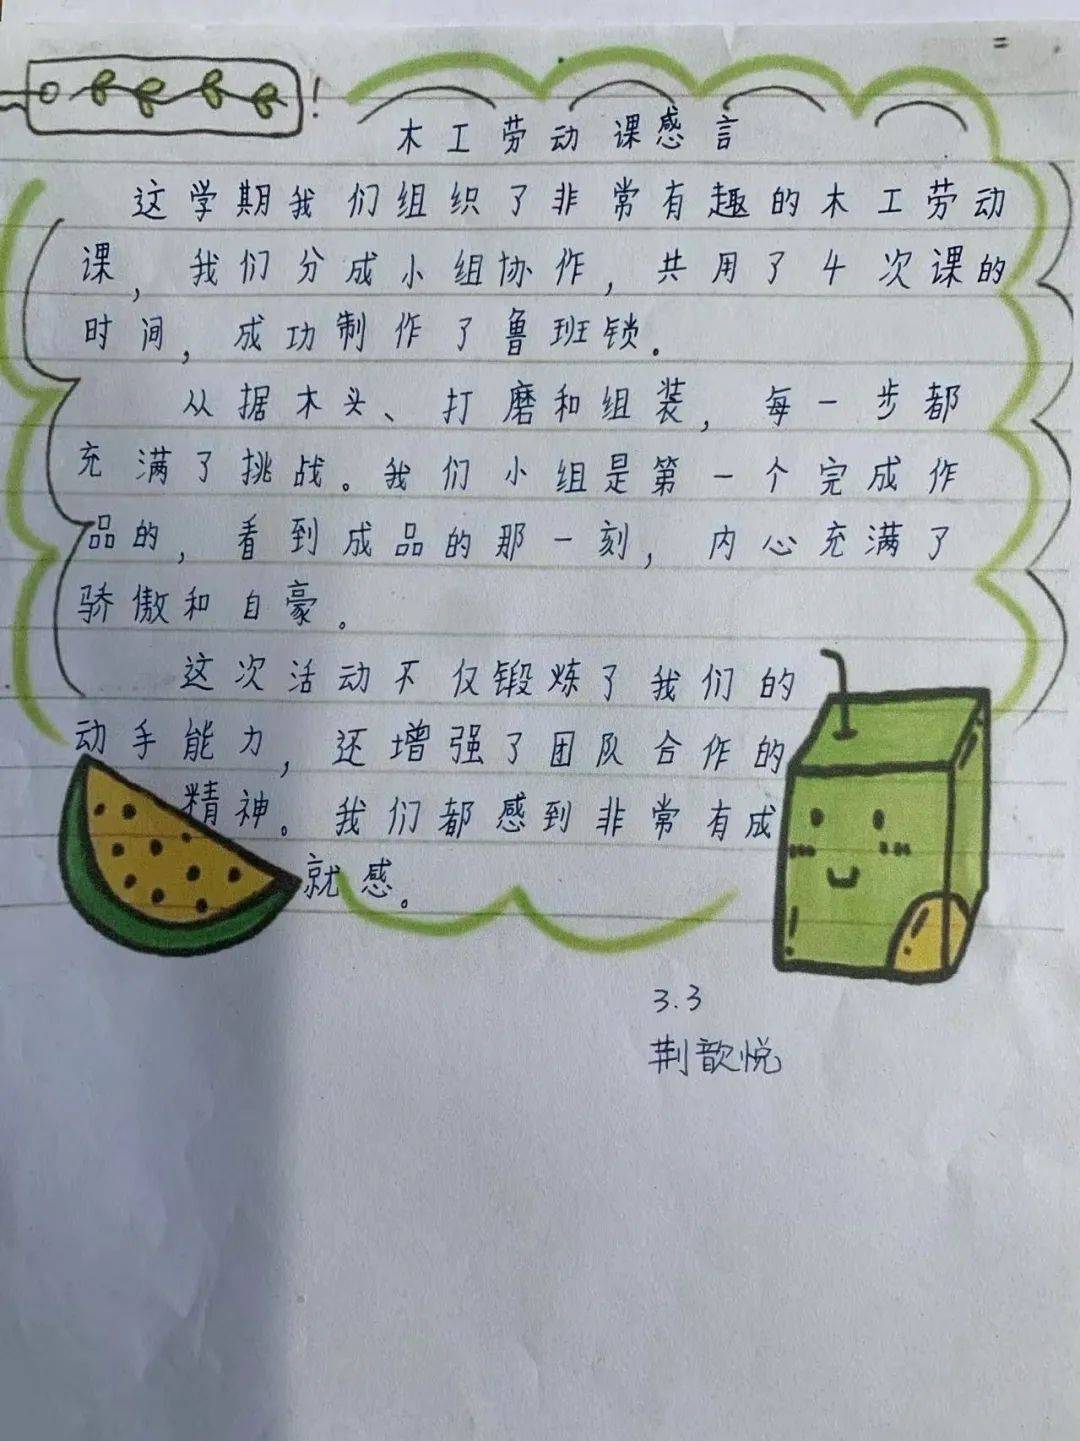 木工劳动课感言
这学期我们组织了非常有趣的木工劳动
课，我们分成小组协作，共用了4次课的
时间，成功制作了鲁班锁.
从据木头、打磨和组装，每一步都
充满了挑战。我们小组是第一个完成作
品的，看到成品的那一刻，内心充满了
骄傲和自豪。
这次活动不仅锻炼了我们的
动手能力，还增强了团队合作的
精神。我们都感到非常有成
就感。
3.3
荆歆悦